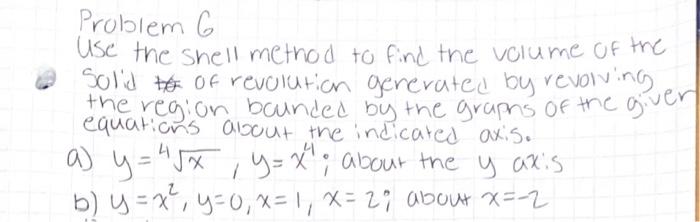 Problem 6
Use the shell method to find the volume of the
solid of revolution generated by revolving
the region bounded by the graphs of the given
equations about the indicated axis.
a) y = ⁴√x , y = x⁴; about the y axis
b) y = x², y=0, x=1, x=2; about x=-2